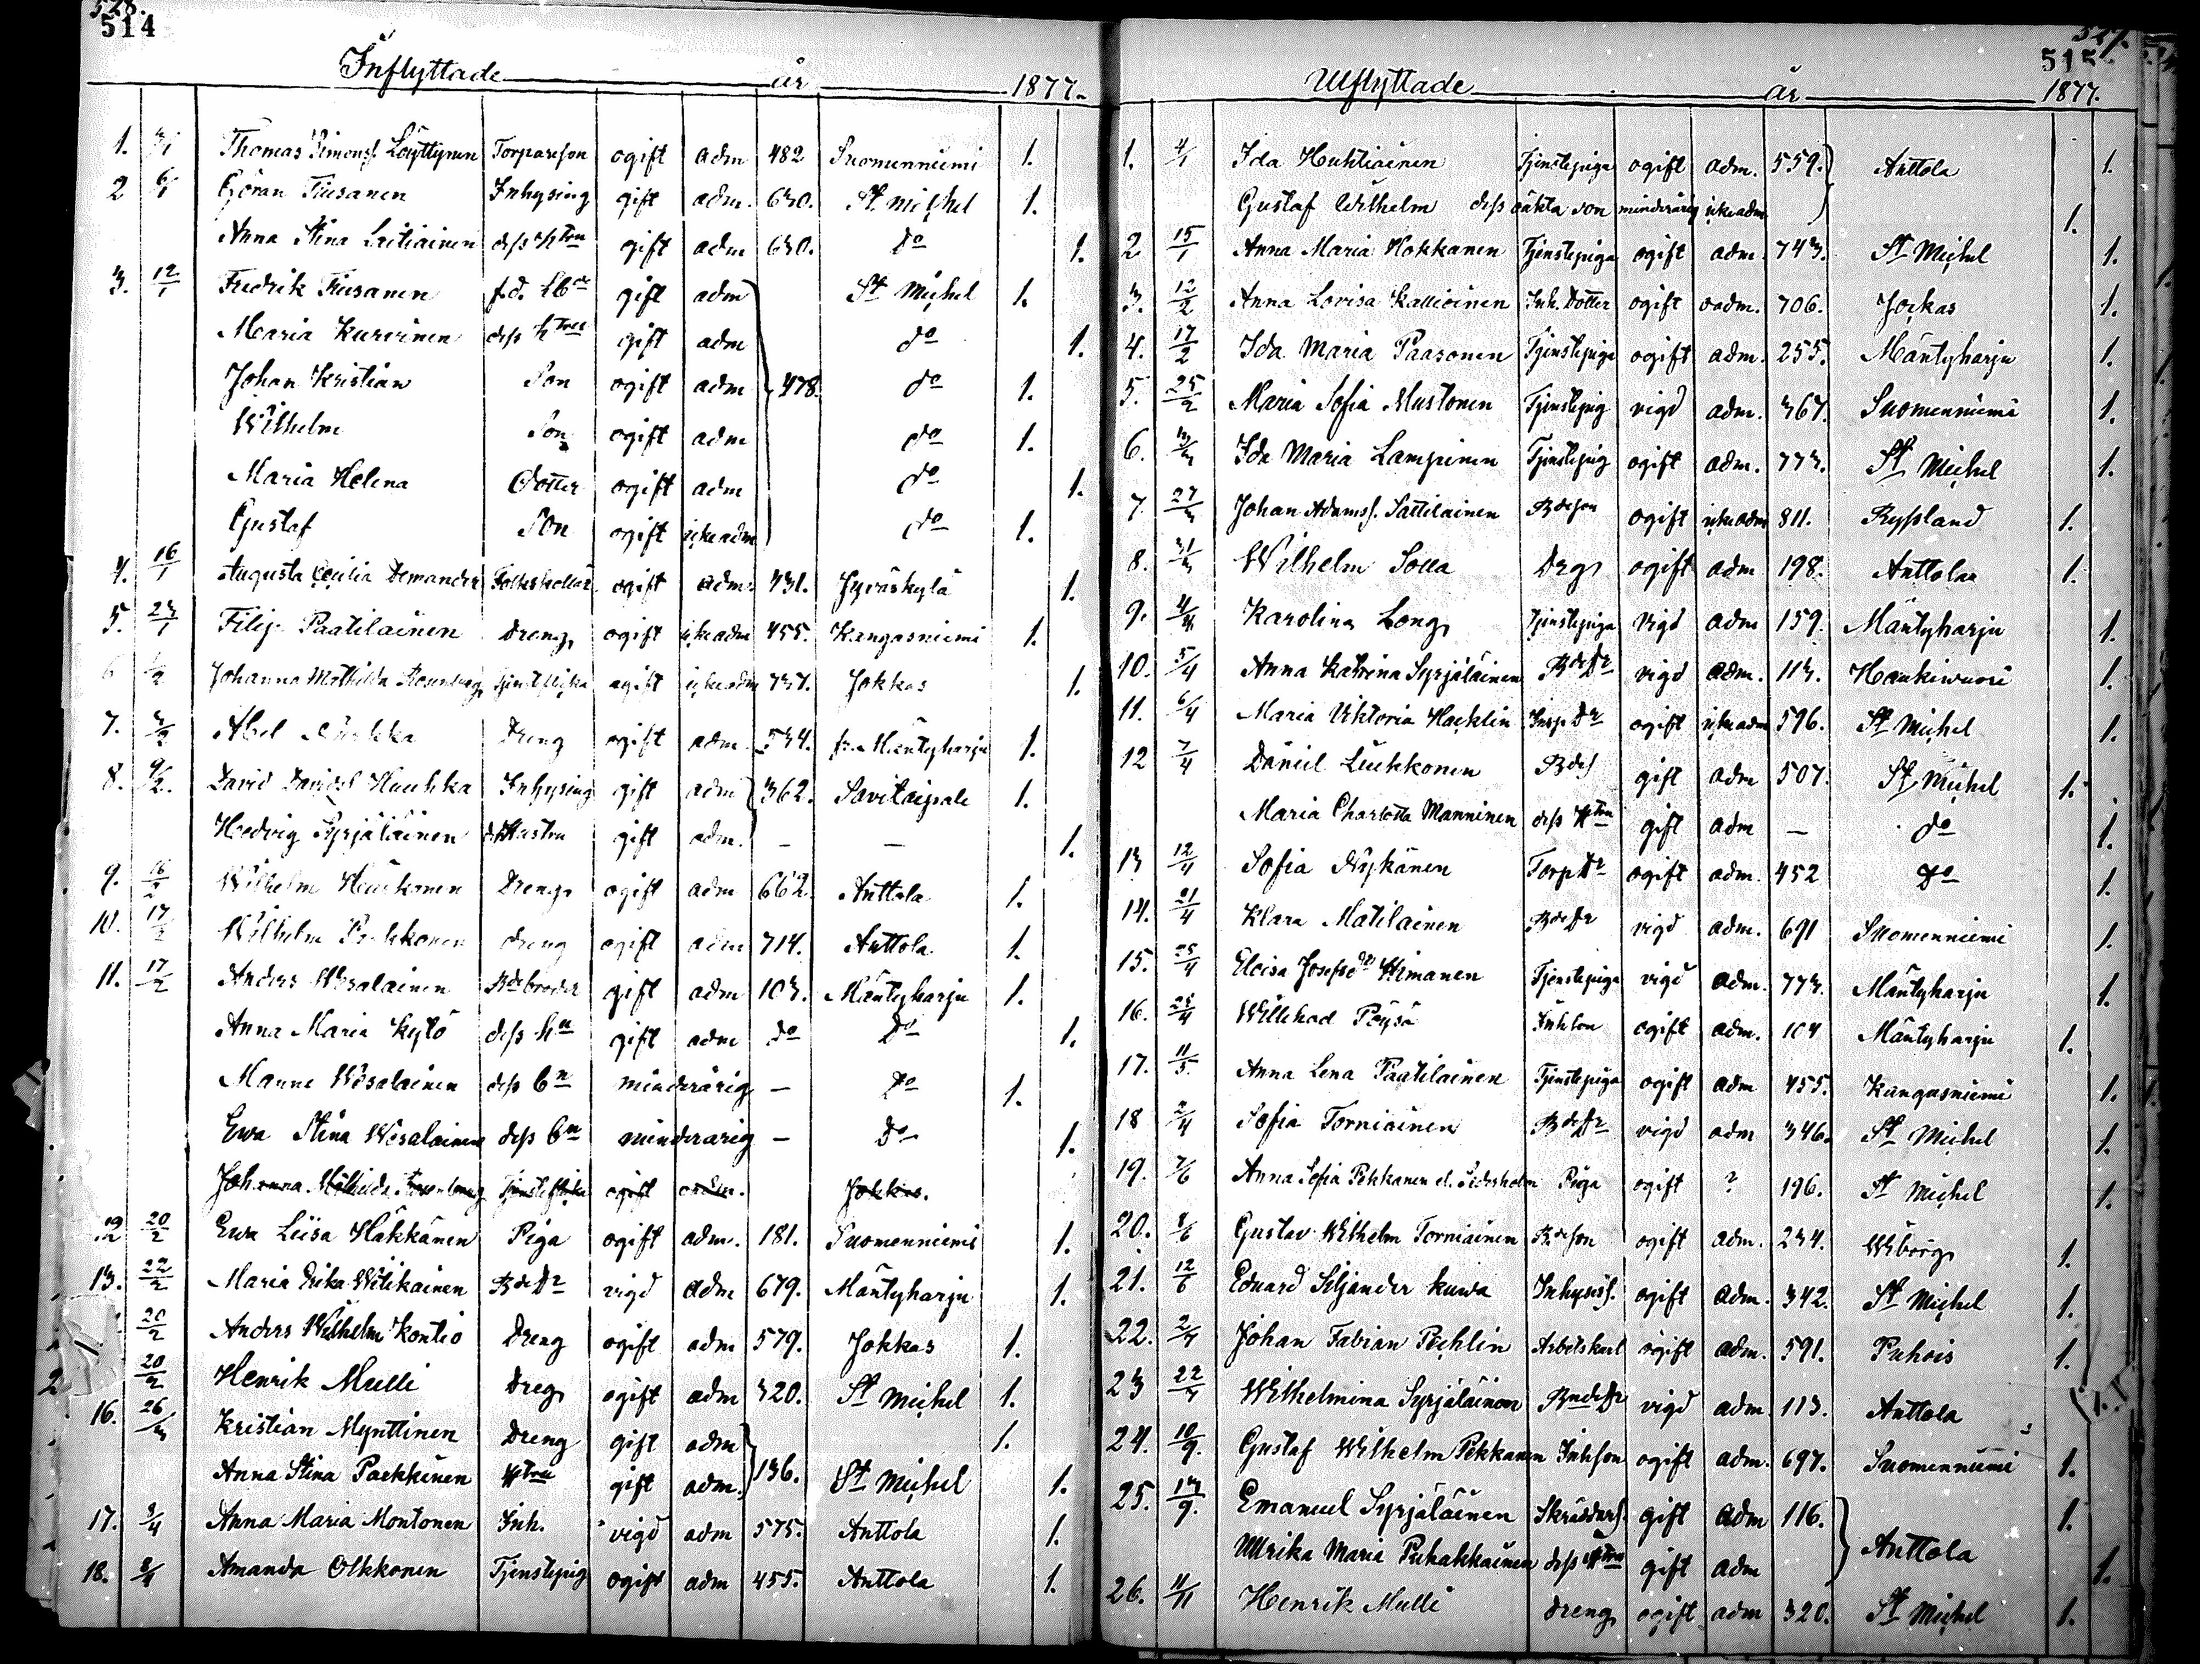 528.
514
Inflyttade år 1877.
1. 3/1 Thomas Simonsf. Löyttynen Torpareson ogift adm 482 Suomenniemi 1.
2 6/1 Göran Tiusanen Inhysing gift adm. 630. St. Michel 1.
Anna Stina Laitiainen dess htru gift adm 630. do 1.
3. 12/1 Fredrik Tiusanen f.d. Lbde gift adm St Michel 1.
Maria Kurvinen dess htru gift adm do 1.
Johan Kristian Son ogift adm 478. do 1.
Wilhelm Son ogift adm do 1.
Maria Helena Dotter ogift adm do 1.
Gustaf Son ogift icke adm do 1.
4. 16/1 Augusta Cecilia Demander ogift adm. 431. Jyväskylä 1.
5. 23/1 Filip Paatilainen Dreng ogift icke adm 455. Kangasniemi 1.
6 1/2 Johanna Mathilda Rosenberg Tjenstflicka ogift icke adm 737. Jokkas 1.
7. 3/2 Abel Dreng ogift adm. 534. fr. Mäntyharju 1.
8. 9/2 David Davidsf Hauhka Inhysing gift adm 362. Savitaipale 1.
Hedvig Syrjäläinen dess Hustru gift adm. — — 1.
9. 16/2 Wilhelm Dreng ogift adm 662. Anttola 1.
10. 17/2 Wilhelm Dreng ogift adm 714. Anttola 1.
11. 17/2 Anders Wesalainen Bdebroder gift adm 103. Mäntyharju 1.
Anna Maria Kytö dess hu gift adm do Do 1.
Manne Wesalainen dess bn minderårig — Do 1.
Ewa Stina Wesalainen dess bn minderårig — Do 1.
Johanna Mathilda Rosenberg Tjenstflicka ogift adm. Jokkas.
12 20/2 Ewa Leisa Häkkänen Piga ogift adm. 181. Suomenniemi 1.
13. 22/2 Maria Erika Witikainen BdeDr vigd adm 679. Mäntyharju 1.
20/2 Anders Wilhelm Kontio Dreng ogift adm 579. Jokkas 1.
20/2 Henrik Mulli Dreg ogift adm 320. St Michel 1.
16. 26/3 Kristian Mynttinen Dreng gift adm 1.
Anna Stina Paekkinen Htru gift adm. 136. St Michel 1.
17. 3/4 Anna Maria Montonen Inh. vigd adm 575. Anttola 1.
18. 8/4 Amanda Olkkonen Tjenstepig ogift adm 455. Anttola 1.
527.
515.
Utflyttade år 1877.
1. 4/1 Ida Huhtiainen Tjenstepiga ogift adm. 559. Anttola 1.
Gustaf Wilhelm dess oäkta son minderårig icke adm 1.
2 15/1 Anna Maria Hokkanen Tjenstepiga ogift adm. 743. St Michel 1.
3. 12/2 Anna Lovisa Kallioinen Inh. Dotter ogift oadm. 706. Jockas 1.
4. 17/2 Ida Maria Paasonen Tjenstepiga ogift adm. 255. Mäntyharju 1.
5. 25/2 Maria Sofia Mustonen Tjenstepig vigd adm. 367. Suomenniemi 1.
6. Ida Maria Lampinen Tjenstepig ogift adm. 773. St Michel 1.
7. 27/3 Johan Adamsf. Sattilainen Bdeson ogift icke adm 811. Ryssland 1.
8. 31/3 Wilhelm Solla Dreg ogift adm 198. Anttolaa 1.
9. 4/4 Karolina Long Tjenstepiga Vigd adm 159. Mäntyharju 1.
10. 5/4 Anna Katrina Syrjäläinen BdeDr vigd adm. 113. Haukiwuori 1.
11. 6/4 Maria Viktoria Hacklin Insp Dr ogift icke adm 596. St Michel 1.
12 7/4 Daniel Liukkonen Bdes gift adm 507. St Michel 1.
Maria Charlotta Manninen dess Htru gift adm — do 1.
13 12/4 Sofia Nykänen Torp Dr ogift adm. 452 Do 1.
14. 21/4 Klara Matilainen BdeDr vigd adm. 691 Suomenniemi 1.
15. 25/4 Eloisa Josefsdr Himanen Tjenstepiga vigd adm. 773. Mäntyharju 1.
16. 25/4 Willehad Pöysä Inhson ogift adm. 104 Mäntyharju 1.
17. 11/5. Anna Lena Paatilainen Tjenstepiga ogift adm 455. Kangasniemi 1.
18 2/4 Sofia Torniainen BdeDr vigd adm 346. St Michel 1.
19. 7/6 Anna Sofia Pekkanen el. Sedersholm Piga ogift ? 196. St Michel 1.
20. 8/6 Gustav Wilhelm Torniainen Bdeson ogift adm. 234. Wiborg 1.
21. 12/6 Eduard Siljander kuwa Inhysisf. ogift adm. 342. St Michel 1.
22. 2/7 Johan Fabian Pechlin Arbetskarl ogift adm. 591. Puhois 1.
23 22/7 Wilhelmina Syrjäläinen BndeDr vigd adm 113. Anttola 1.
24. 10/9. Gustaf Wilhelm Pekkanen Inhson ogift adm. 697. Suomenniemi 1.
25. 13/9. Emanuel Syrjäläinen Skräddarf. gift adm 116. 1.
Ulrika Maria Puhakkainen dess Htru gift adm Anttola 1.
26. 11/11 Henrik Mulli dreng ogift adm 320. St Michel 1.